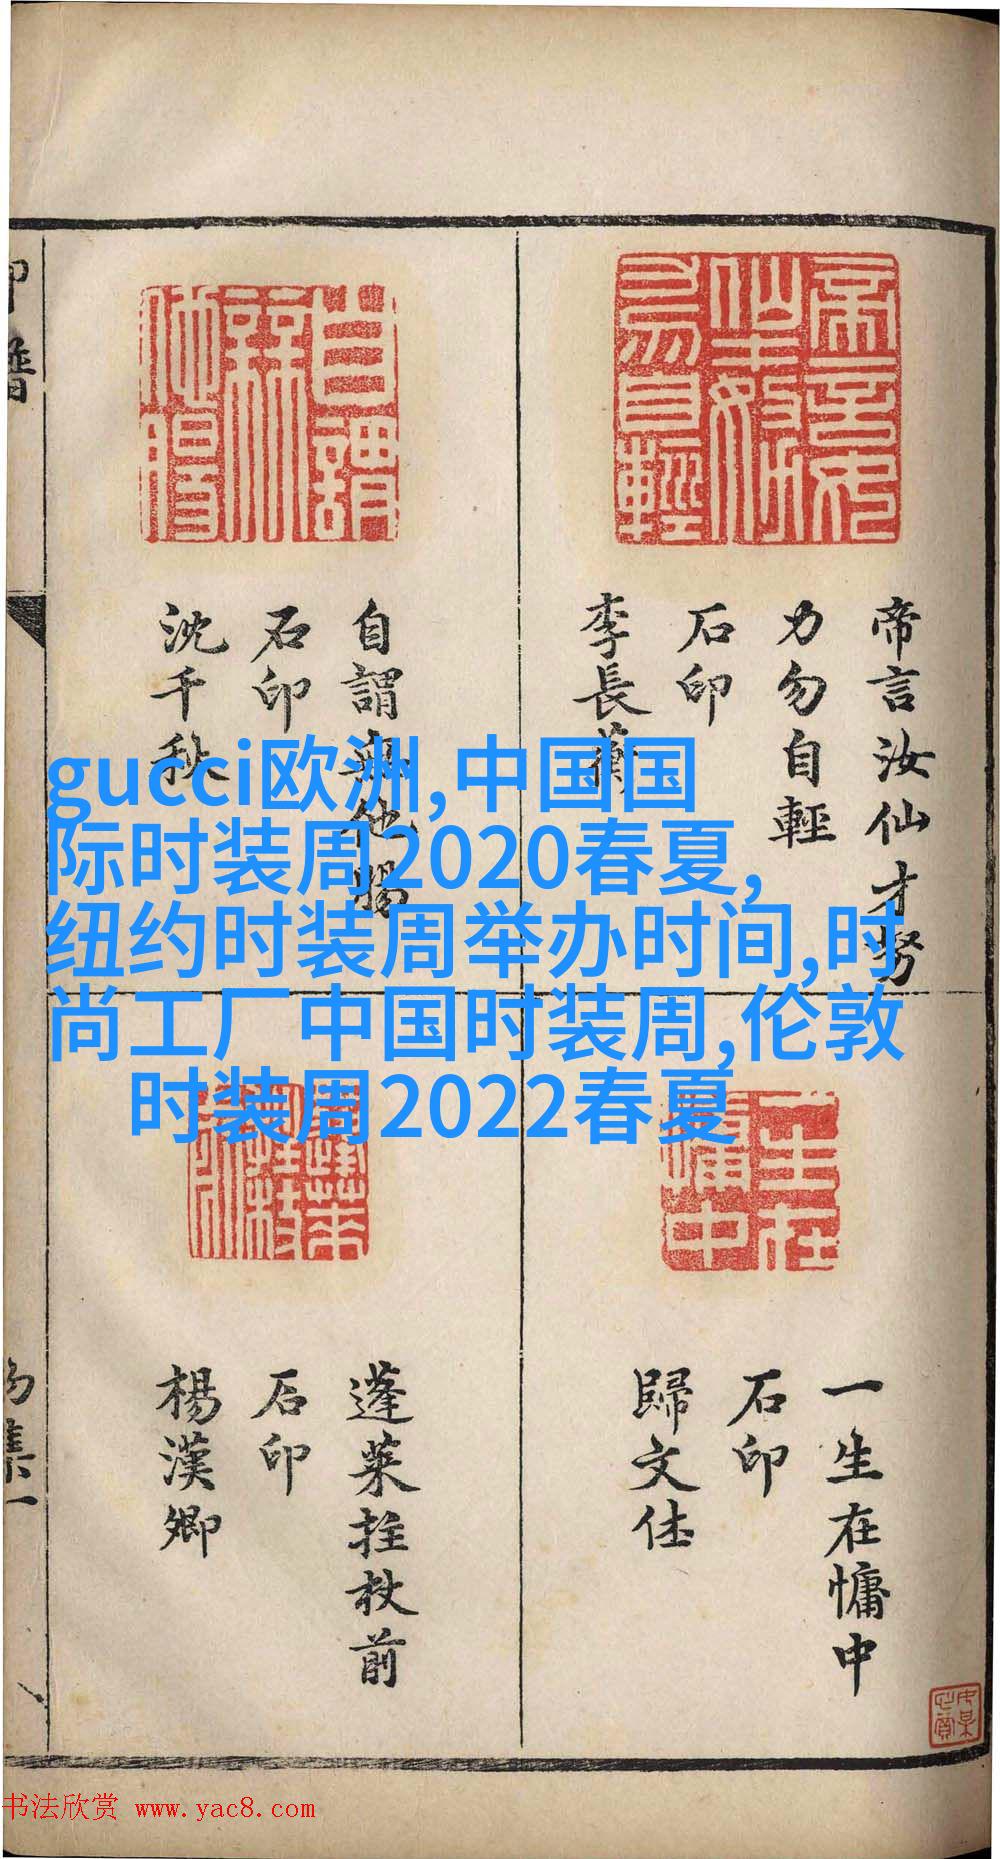 帝言汝仙才努
力勿自輕
石印
李長蘅
自謂無他腸
石印
沈千秋
gucci欧洲,中国国
际时装周2020春夏,
纽约时装周举办时间,时
尚工厂中国时装周,伦敦
时装周2022春夏
一生在慵中
石印
歸文休
蓬萊拄杖前
石印
楊漢卿
集一
书法欣赏 www.yac8.com